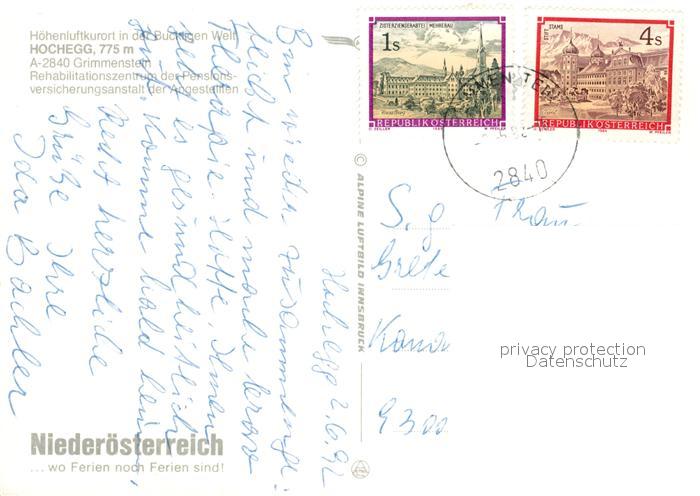 Höhenluftkurort in der Buckligen Welt
HOCHEGG, 775 m
A-2840 Grimmenstein
Rehabilitationszentrum der Pensions-
versicherungsanstalt der Angestellten
Hochegg 2.6.92
Bin wieder zusammenge-
flickt und mache brav
Therapie. Hoffe, Ihnen
geht es gesundheitlich
gut. Komme bald heim,
Recht herzliche
Grüße Ihre
Ida
Niederösterreich
... wo Ferien noch Ferien sind!
© ALPINE LUFTBILD INNSBRUCK
ZISTERZIENSERABTEI MEHRERAU
1s
REPUBLIK ÖSTERREICH
STIFT STAMS
4s
REPUBLIK ÖSTERREICH
2840
S. g. Frau
Grete
9300
privacy protection
Datenschutz